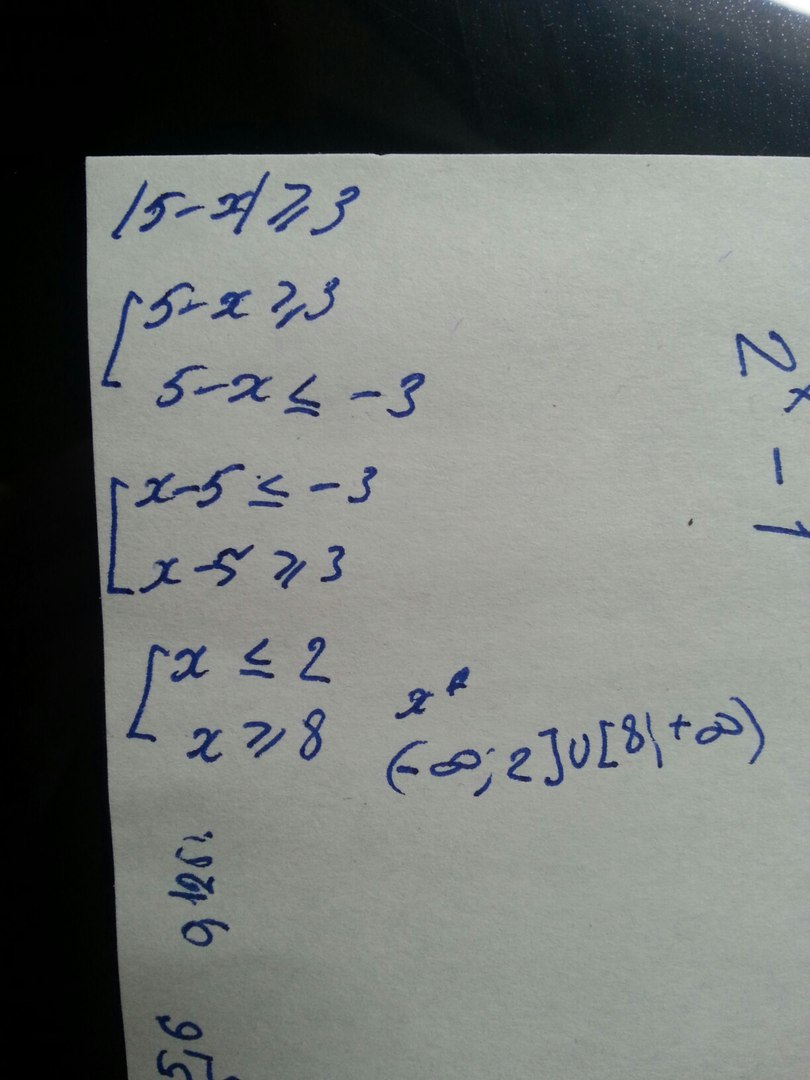 |5-x|⩾3
[5-x⩾3
5-x≤-3
[x-5≤-3
x-5⩾3
[x≤2
x⩾8
x
(-∞;2]∪[8;+∞)
2x
-1
5,6